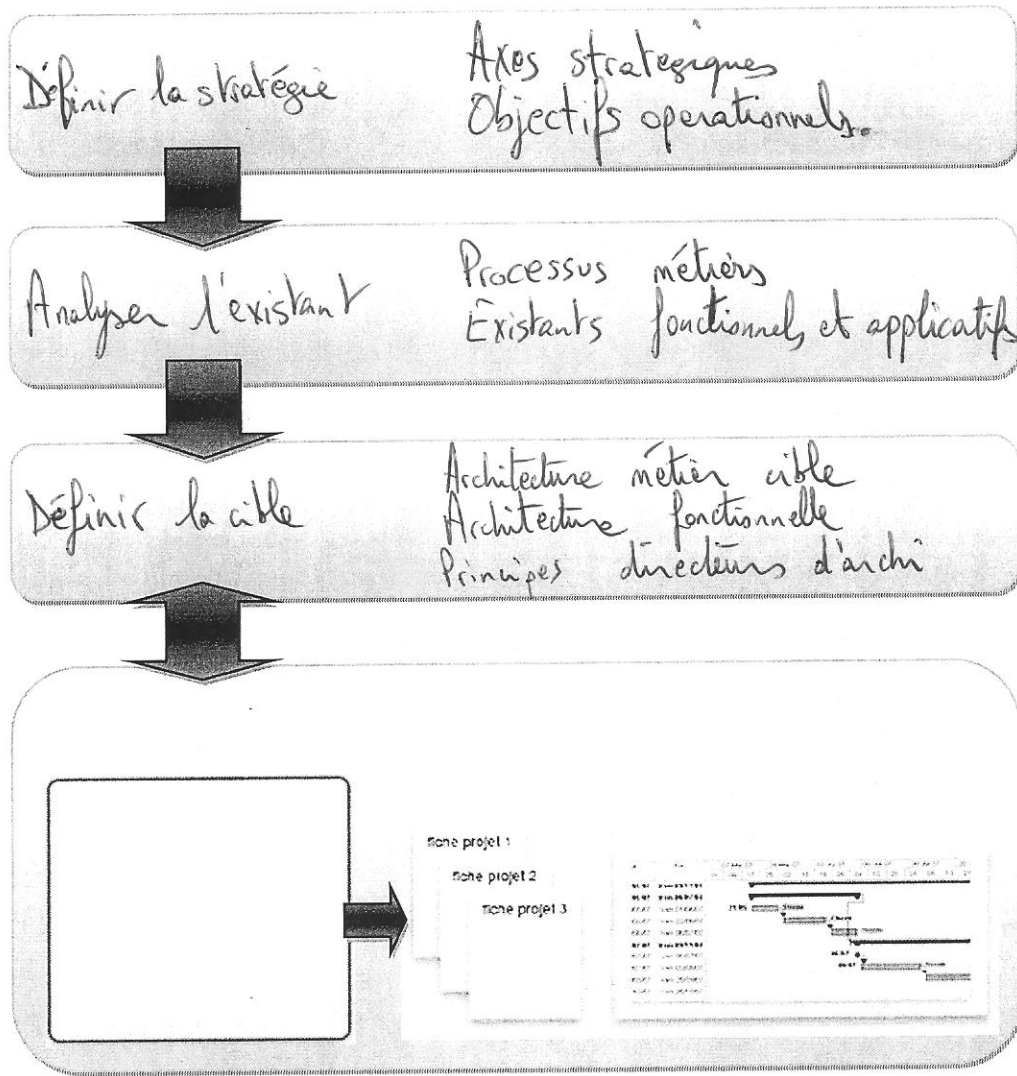 Définir la stratégie
Axes strategiques
Objectifs operationnels.
Analyser l'existant
Processus métiers
Existants fonctionnels et applicatifs
Définir la cible
Architecture métier cible
Architecture fonctionnelle
Principes directeurs d'archi
fiche projet 1
fiche projet 2
fiche projet 3